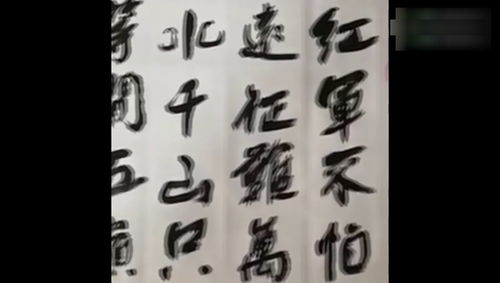 红軍不怕
遠征難萬
水千山只
等閒五